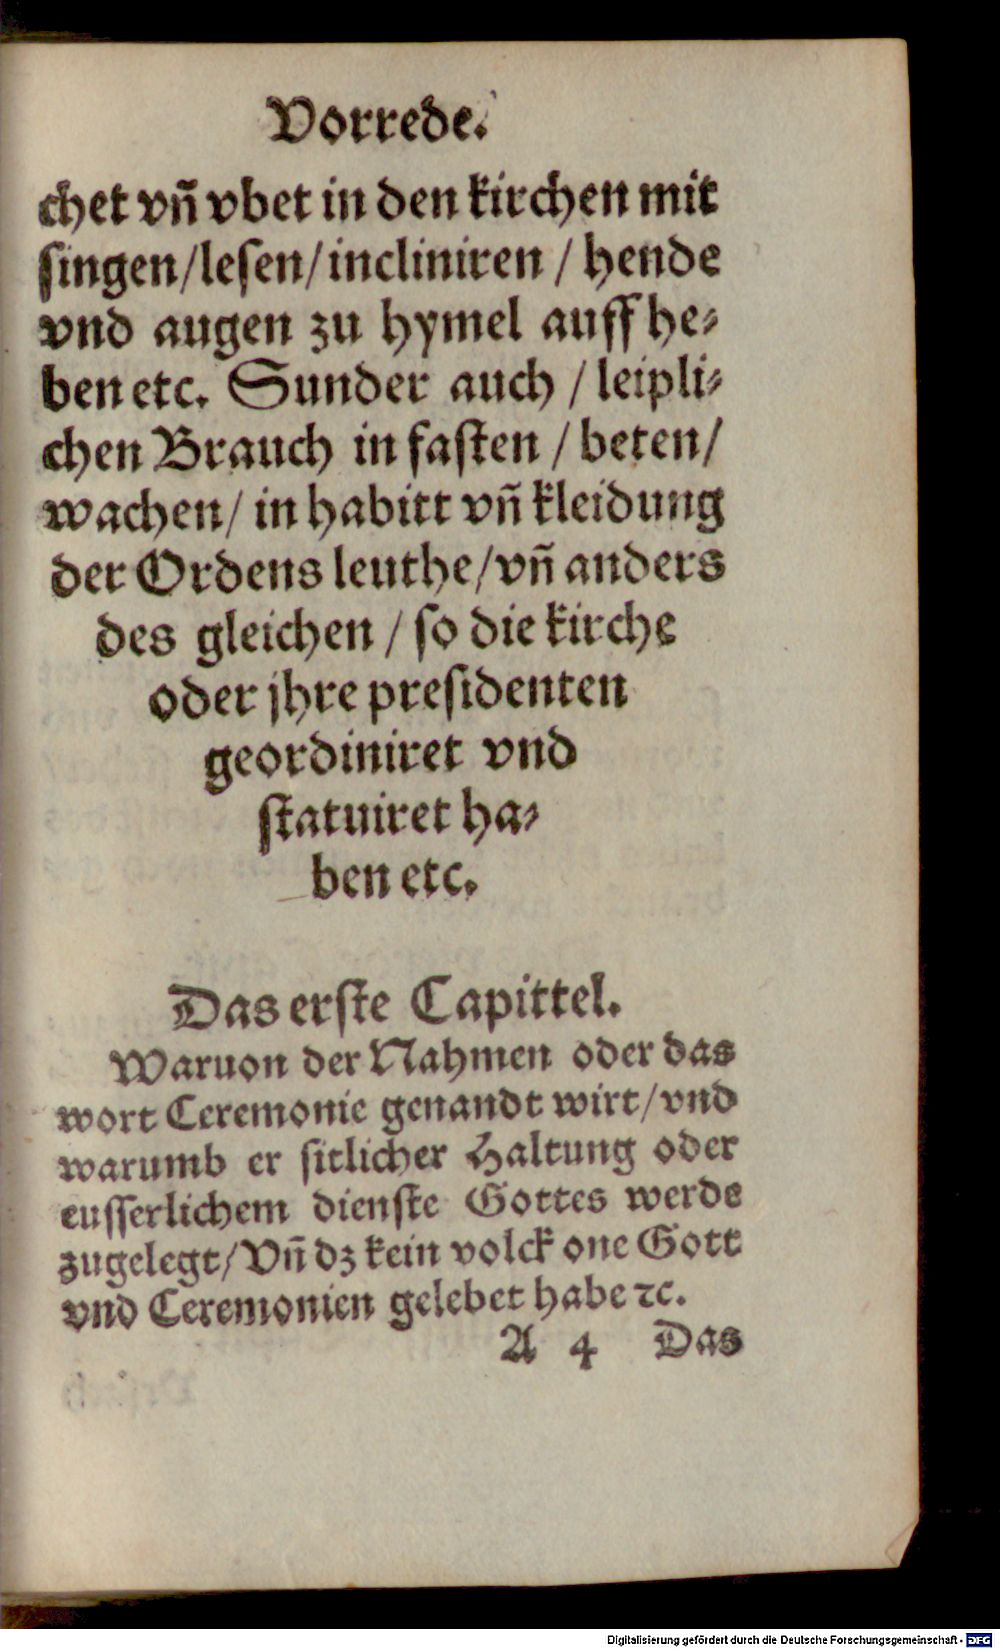 Vorrede.
chet vñ vbet in den kirchen mit
ſingen/leſen/incliniren / hende
vnd augen zu hymel auff he⸗
ben etc. Sunder auch / leipli⸗
chen Brauch in faſten / beten/
wachen/ in habitt vñ kleidung
der Ordens leuthe/vñ anders
des gleichen / ſo die kirche
oder jhre preſidenten
geordiniret vnd
ſtatuiret ha⸗
ben etc.
Das erſte Capittel.
Waruon der Nahmen oder das
wort Ceremonie genandt wirt/vnd
warumb er ſitlicher Haltung oder
euſſerlichem dienſte Gottes werde
zugelegt/Vñ dz kein volck one Gott
vnd Ceremonien gelebet habe ꝛc.
A 4 Das
Digitalisierung gefördert durch die Deutsche Forschungsgemeinschaft - DFG